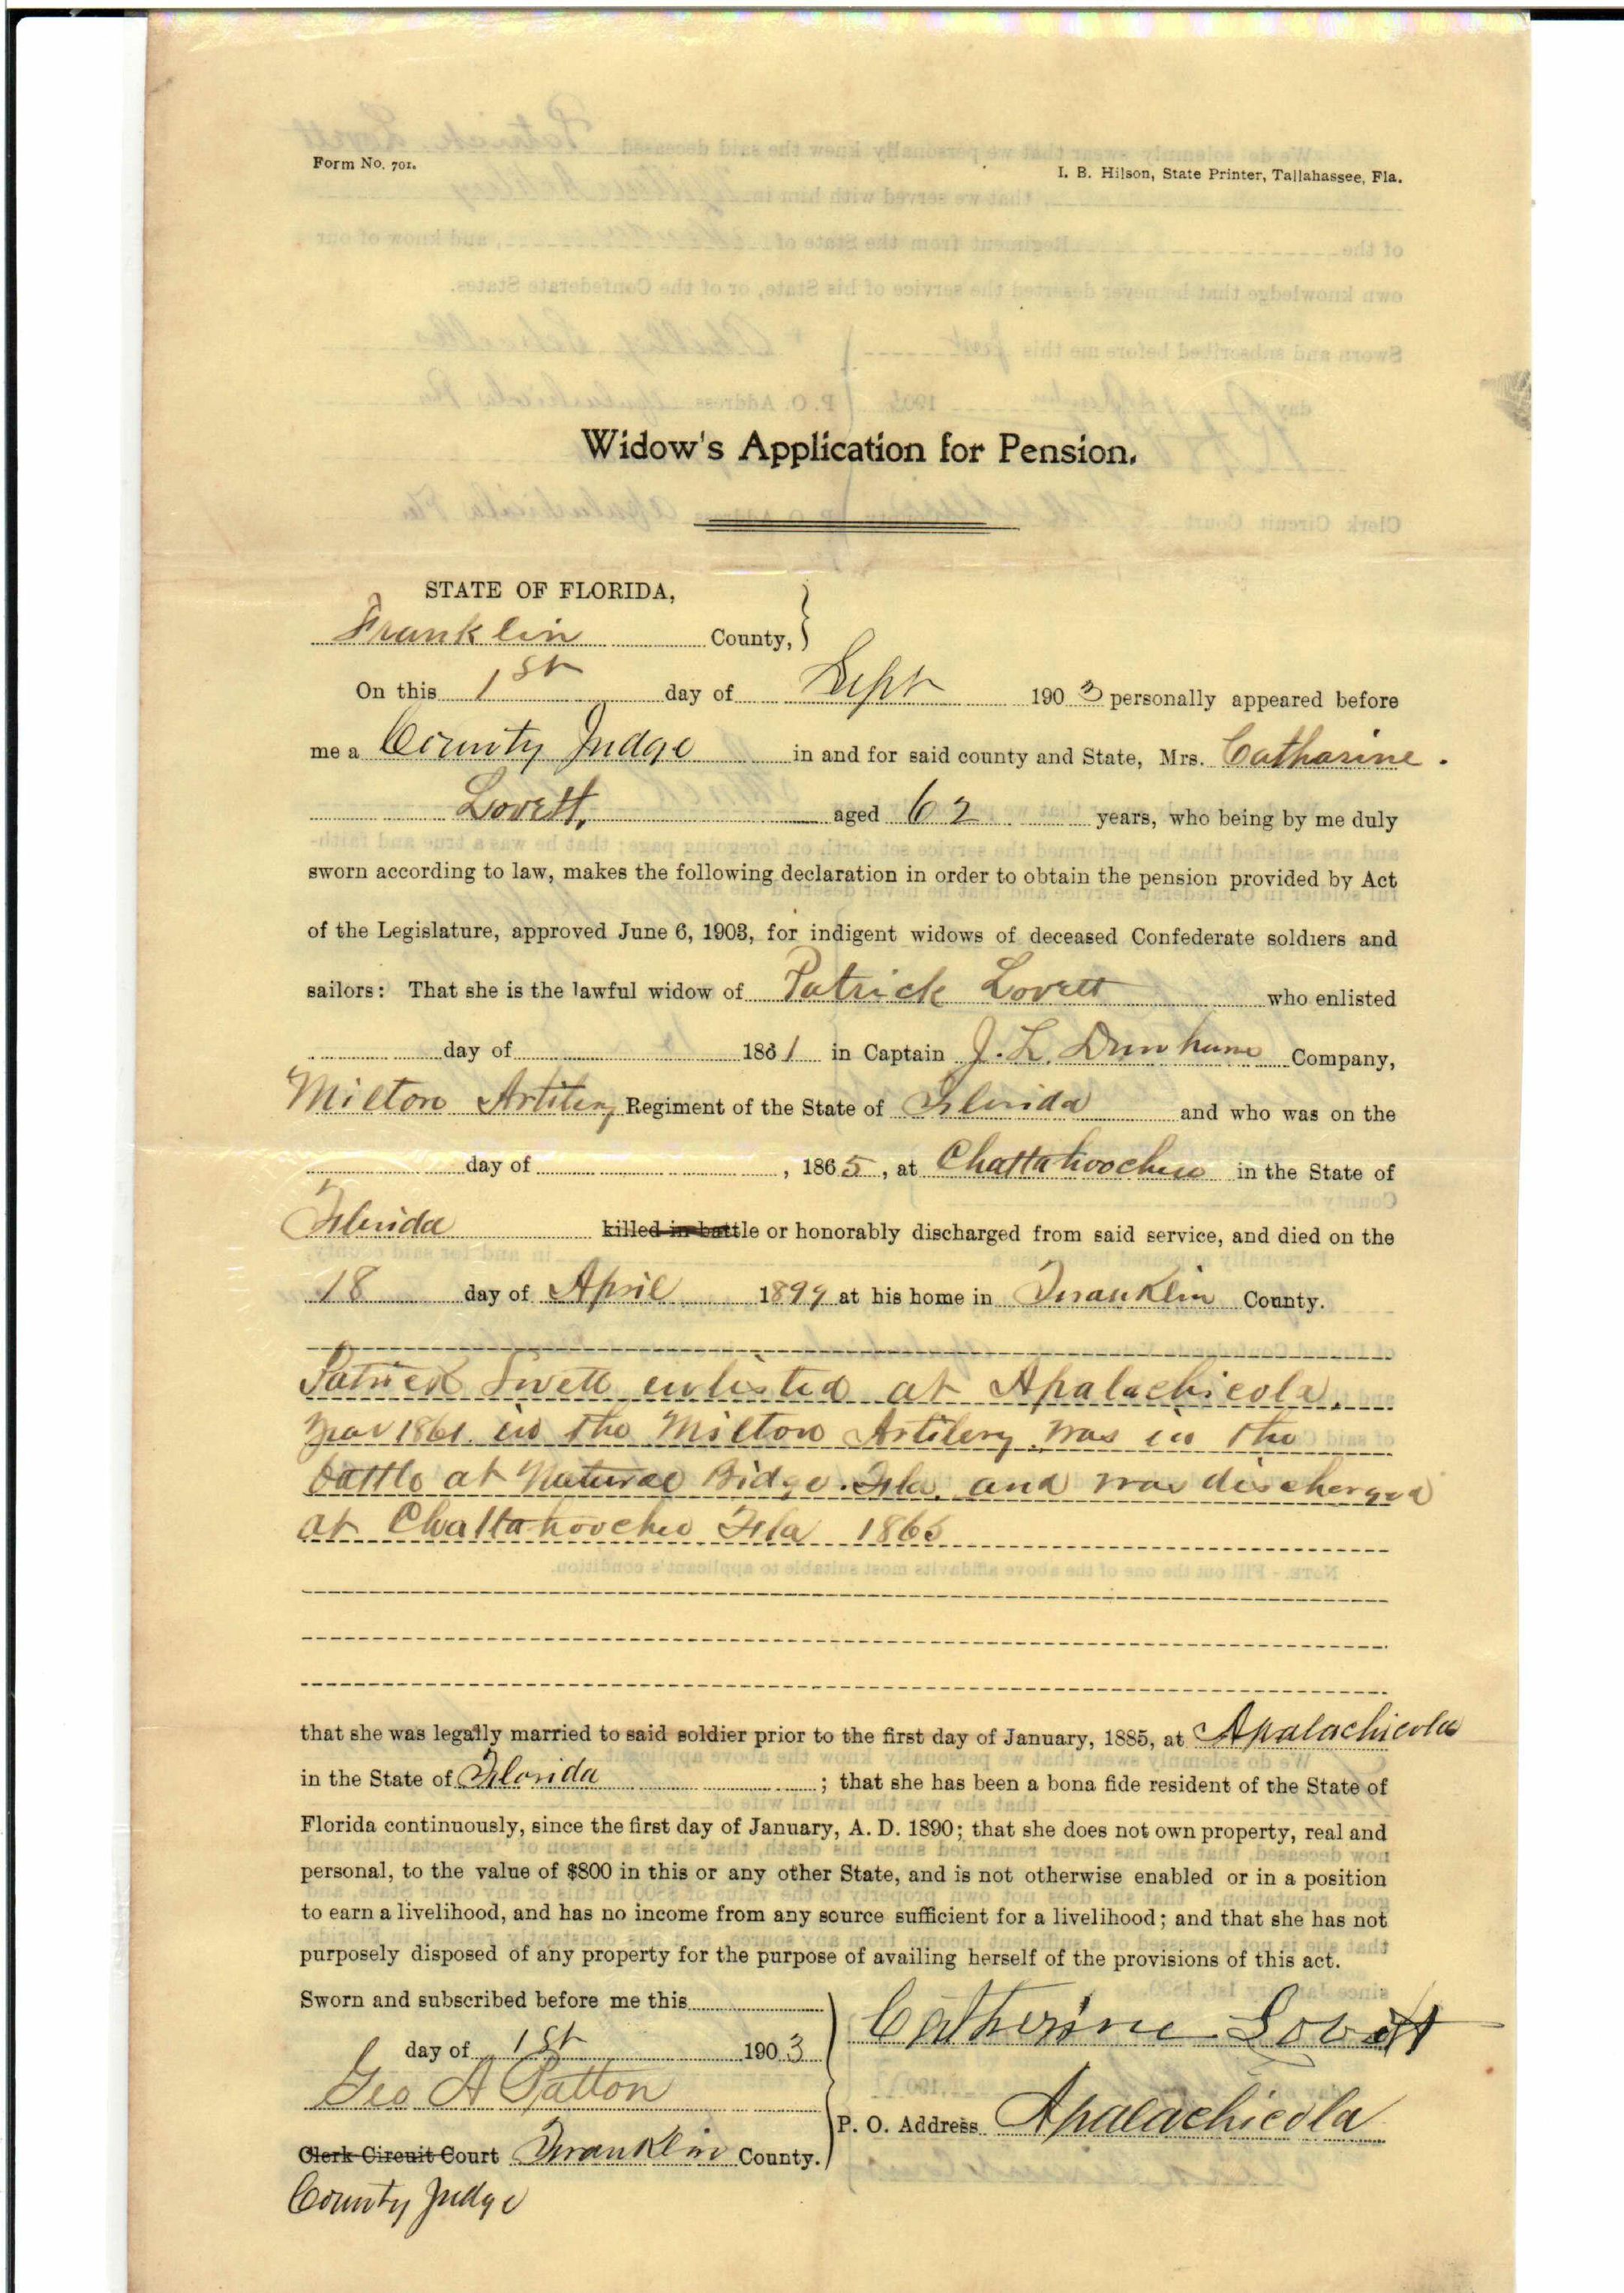 Form No. 701.
I. B. Hilson, State Printer, Tallahassee, Fla.
Widow's Application for Pension.
STATE OF FLORIDA,
Franklin County,
On this 1st day of Sept 1903 personally appeared before
me a County Judge in and for said county and State, Mrs. Catharine
Lovett, aged 62 years, who being by me duly
sworn according to law, makes the following declaration in order to obtain the pension provided by Act
of the Legislature, approved June 6, 1903, for indigent widows of deceased Confederate soldiers and
sailors: That she is the lawful widow of Patrick Lovett who enlisted
day of 1861 in Captain J. L. Dunham Company,
Milton Artilery Regiment of the State of Florida and who was on the
day of , 1865, at Chattahoochee in the State of
Florida killed in battle or honorably discharged from said service, and died on the
18 day of April 1899 at his home in Franklin County.
Patrick Lovett enlisted at Apalachicola,
year 1861. in the Milton Artilery was in the
battle at Natural Bidge. Fla. and was discharged
at Chattahoochee Fla 1865
that she was legally married to said soldier prior to the first day of January, 1885, at Apalachicola
in the State of Florida ; that she has been a bona fide resident of the State of
Florida continuously, since the first day of January, A. D. 1890; that she does not own property, real and
personal, to the value of $800 in this or any other State, and is not otherwise enabled or in a position
to earn a livelihood, and has no income from any source sufficient for a livelihood; and that she has not
purposely disposed of any property for the purpose of availing herself of the provisions of this act.
Sworn and subscribed before me this
day of 1st 1903
Catherine Lovett
Geo A Patton
P. O. Address Apalachicola
Clerk Circuit Court Franklin County.
County Judge